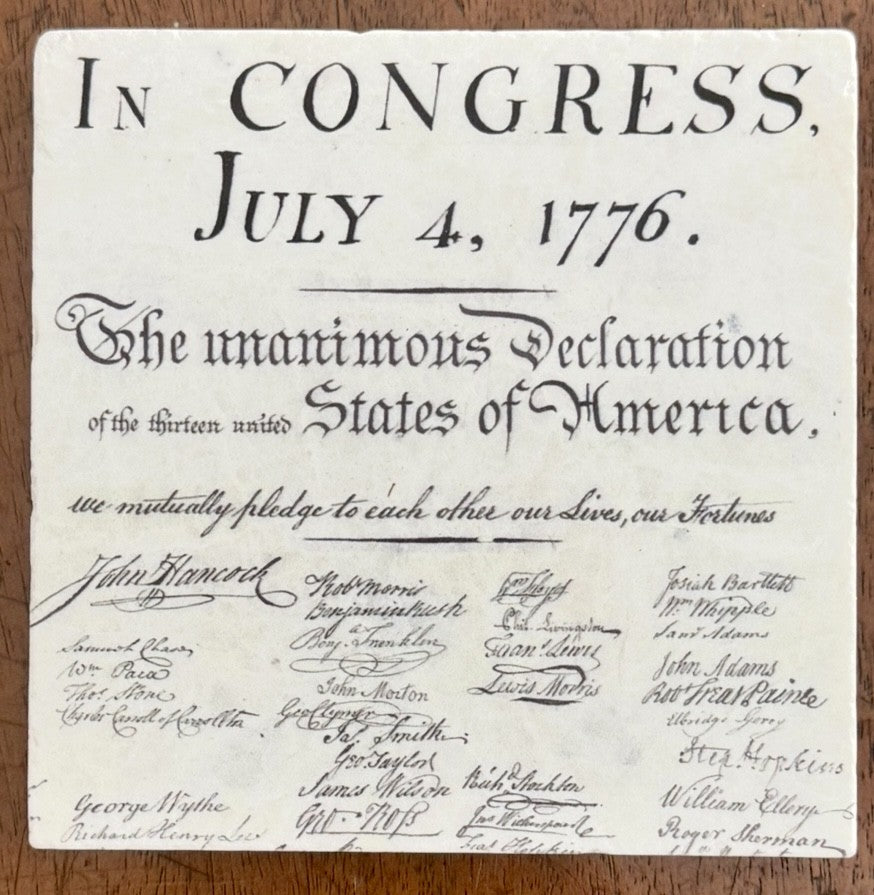 IN CONGRESS,
JULY 4, 1776.
The unanimous Declaration
of the thirteen united States of America,
we mutually pledge to each other our Lives, our Fortunes
John Hancock
Samuel Chase
Wm Paca
Thos. Stone
Charles Carroll of Carrollton
George Wythe
Richard Henry Lee
Robt Morris
Benjamin Rush
Benja. Franklin
John Morton
Geo Clymer
Jas. Smith
Geo. Taylor
James Wilson
Geo. Ross
Wm Floyd
Phil. Livingston
Frans. Lewis
Lewis Morris
Richd. Stockton
Jno Witherspoon
Fras. Hopkinson
Josiah Bartlett
Wm Whipple
Saml Adams
John Adams
Robt Treat Paine
Elbridge Gerry
Step. Hopkins
William Ellery
Roger Sherman